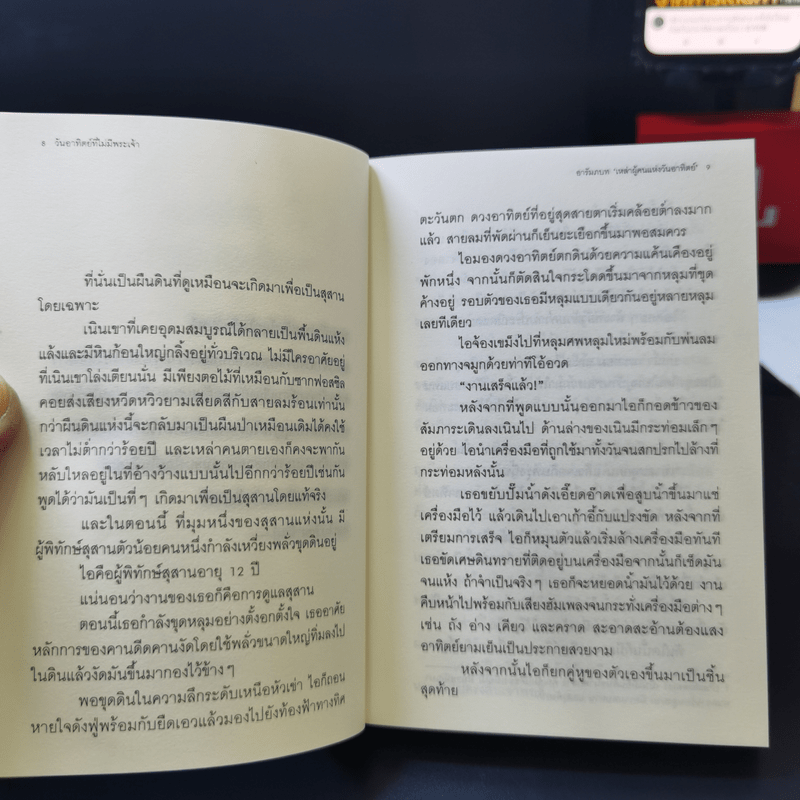 ๘ วันอาทิตย์ที่ไม่มีพระเจ้า
ที่นั่นเป็นผืนดินที่ดูเหมือนจะเกิดมาเพื่อเป็นสุสาน
โดยเฉพาะ
เนินเขาที่เคยอุดมสมบูรณ์ได้กลายเป็นพื้นดินแห้ง
แล้งและมีหินก้อนใหญ่กลิ้งอยู่ทั่วบริเวณ ไม่มีใครอาศัยอยู่
ที่เนินเขาโล่งเตียนนั่น มีเพียงตอไม้ที่เหมือนกับซากฟอสซิล
คอยส่งเสียงหวีดหวิวยามเสียดสีกับสายลมร้อนเท่านั้น
กว่าผืนดินแห่งนี้จะกลับมาเป็นผืนป่าเหมือนเดิมได้คงใช้
เวลาไม่ต่ำกว่าร้อยปี และเหล่าคนตายเองก็คงจะพากัน
หลับใหลอยู่ในที่อ้างว้างแบบนั้นไปอีกกว่าร้อยปีเช่นกัน
พูดได้ว่ามันเป็นที่ๆ เกิดมาเพื่อเป็นสุสานโดยแท้จริง
และในตอนนี้ ที่มุมหนึ่งของสุสานแห่งนั้น มี
ผู้พิทักษ์สุสานตัวน้อยคนหนึ่งกำลังเหวี่ยงพลั่วขุดดินอยู่
ไอคือผู้พิทักษ์สุสานอายุ 12 ปี
แน่นอนว่างานของเธอก็คือการดูแลสุสาน
ตอนนี้เธอกำลังขุดหลุมอย่างตั้งอกตั้งใจ เธออาศัย
หลักการของคานดีดคานงัดโดยใช้พลั่วขนาดใหญ่ทิ่มลงไป
ในดินแล้วงัดมันขึ้นมากองไว้ข้างๆ
พอขุดดินในความลึกระดับเหนือหัวเข่า ไอก็ถอน
หายใจดังฟู่พร้อมกับยืดเอวแล้วมองไปยังท้องฟ้าทางทิศ
อารัมภบท 'เหล่าผู้คนแห่งวันอาทิตย์' ๙
ตะวันตก ดวงอาทิตย์ที่อยู่สุดสายตาเริ่มคล้อยต่ำลงมาก
แล้ว สายลมที่พัดผ่านก็เย็นยะเยือกขึ้นมาพอสมควร
ไอมองดวงอาทิตย์ตกดินด้วยความแค้นเคืองอยู่
พักหนึ่ง จากนั้นก็ตัดสินใจกระโดดขึ้นมาจากหลุมที่ขุด
ค้างอยู่ รอบตัวของเธอมีหลุมแบบเดียวกันอยู่หลายหลุม
เลยทีเดียว
ไอจ้องเขม็งไปที่หลุมศพหลุมใหม่พร้อมกับพ่นลม
ออกทางจมูกด้วยท่าทีโอ้อวด
"งานเสร็จแล้ว!"
หลังจากที่พูดแบบนั้นออกมาไอก็กอดข้าวของ
สัมภาระเดินลงเนินไป ด้านล่างของเนินมีกระท่อมเล็กๆ
อยู่ด้วย ไอนำเครื่องมือที่ถูกใช้มาทั้งวันจนสกปรกไปล้างที่
กระท่อมหลังนั้น
เธอขยับปั๊มน้ำดังเอี๊ยดอ๊าดเพื่อสูบน้ำขึ้นมาแช่
เครื่องมือไว้ แล้วเดินไปเอาเก้าอี้กับแปรงขัด หลังจากที่
เตรียมการเสร็จ ไอก็หมุนตัวแล้วเริ่มล้างเครื่องมือทันที
เธอขัดเศษดินทรายที่ติดอยู่บนเครื่องมือจากนั้นก็เช็ดมัน
จนแห้ง ถ้าจำเป็นจริงๆ เธอก็จะหยอดน้ำมันไว้ด้วย งาน
คืบหน้าไปพร้อมกับเสียงฮัมเพลงจนกระทั่งเครื่องมือต่างๆ
เช่น ถัง อ่าง เคียว และคราด สะอาดสะอ้านต้องแสง
อาทิตย์ยามเย็นเป็นประกายสวยงาม
หลังจากนั้นไอก็ยกคู่หูของตัวเองขึ้นมาเป็นชิ้น
สุดท้าย